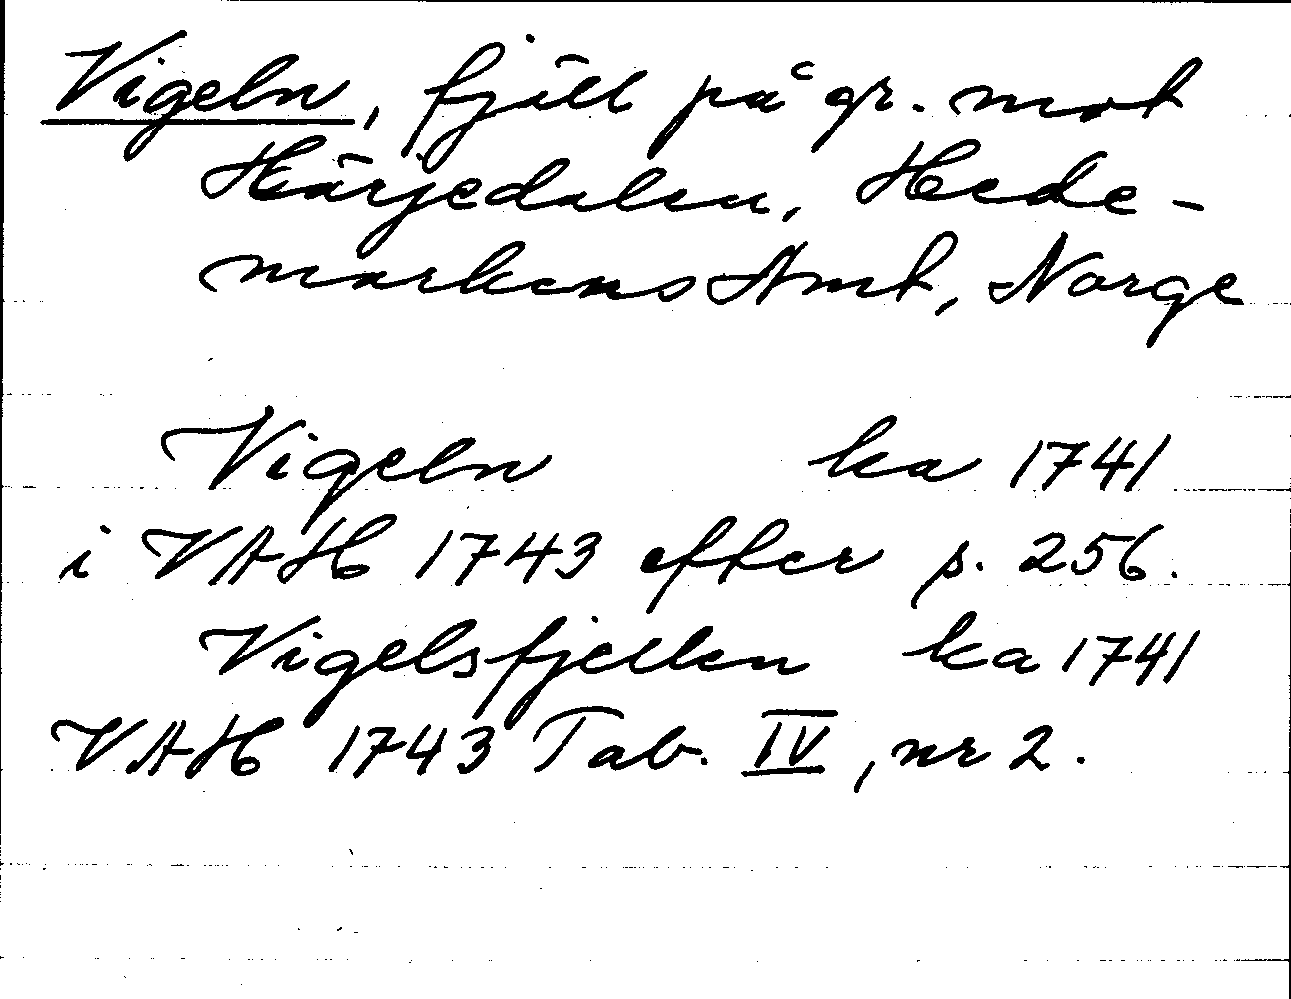 Vigeln, fjäll på gr. mot
Härjedalen, Hede-
markens Amt, Norge
Vigeln ka 1741
i VAH 1743 efter p. 256.
Vigelsfjellen ka 1741
VAH 1743 Tab. IV, nr 2.